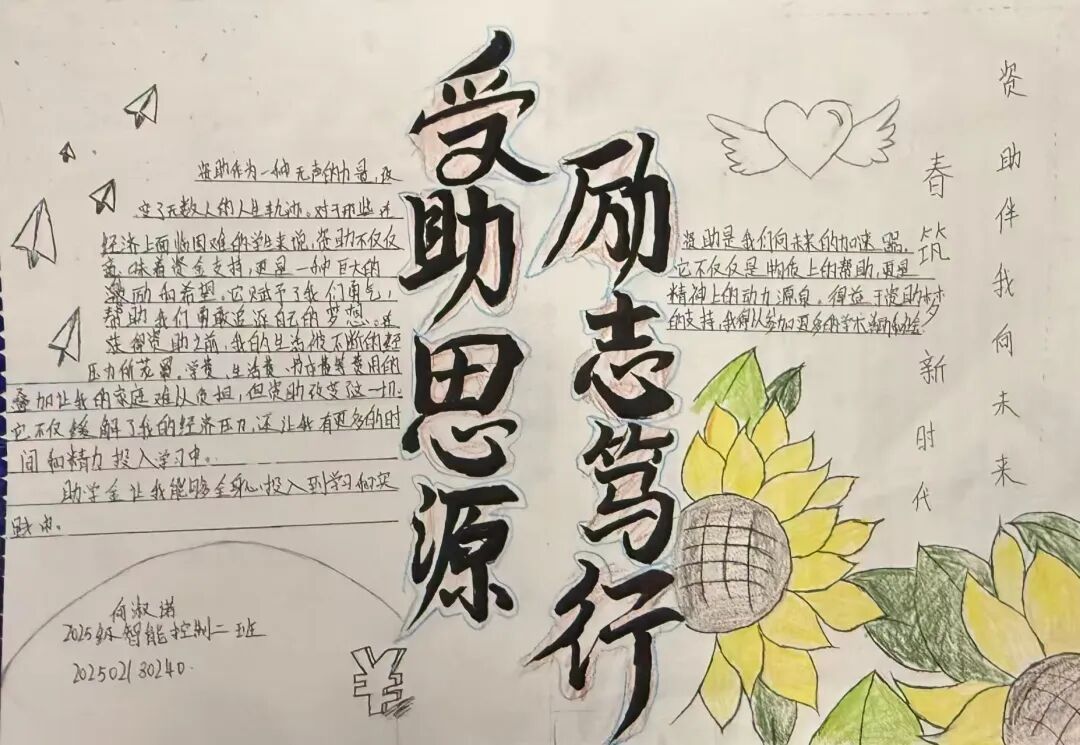 受助思源
励志笃行
资助伴我向未来
春筑新时代
资助作为一种无声的力量，改
变了无数人的人生轨迹。对于那些在
经济上面临困难的学生来说，资助不仅仅
意味着资金支持，更是一种巨大的
激励和希望。它赋予了我们勇气，
帮助我们勇敢追逐自己的梦想。在
获得资助之前，我的生活被不断的经
济压力所笼罩。学费、生活费、书本费等费用的
叠加让我的家庭难以负担，但资助改变了这一切。
它不仅缓解了我的经济压力，还让我有更多的时
间和精力投入学习中。
助学金让我能够全身心投入到学习和实
践中。
资助是我们向未来的加速器，
它不仅仅是物质上的帮助，更是
精神上的动力源泉。得益于资助梦
的支持，我得以参加更多的学术活动和
何淑诺
2025级智能控制二班
202502130240.
¥